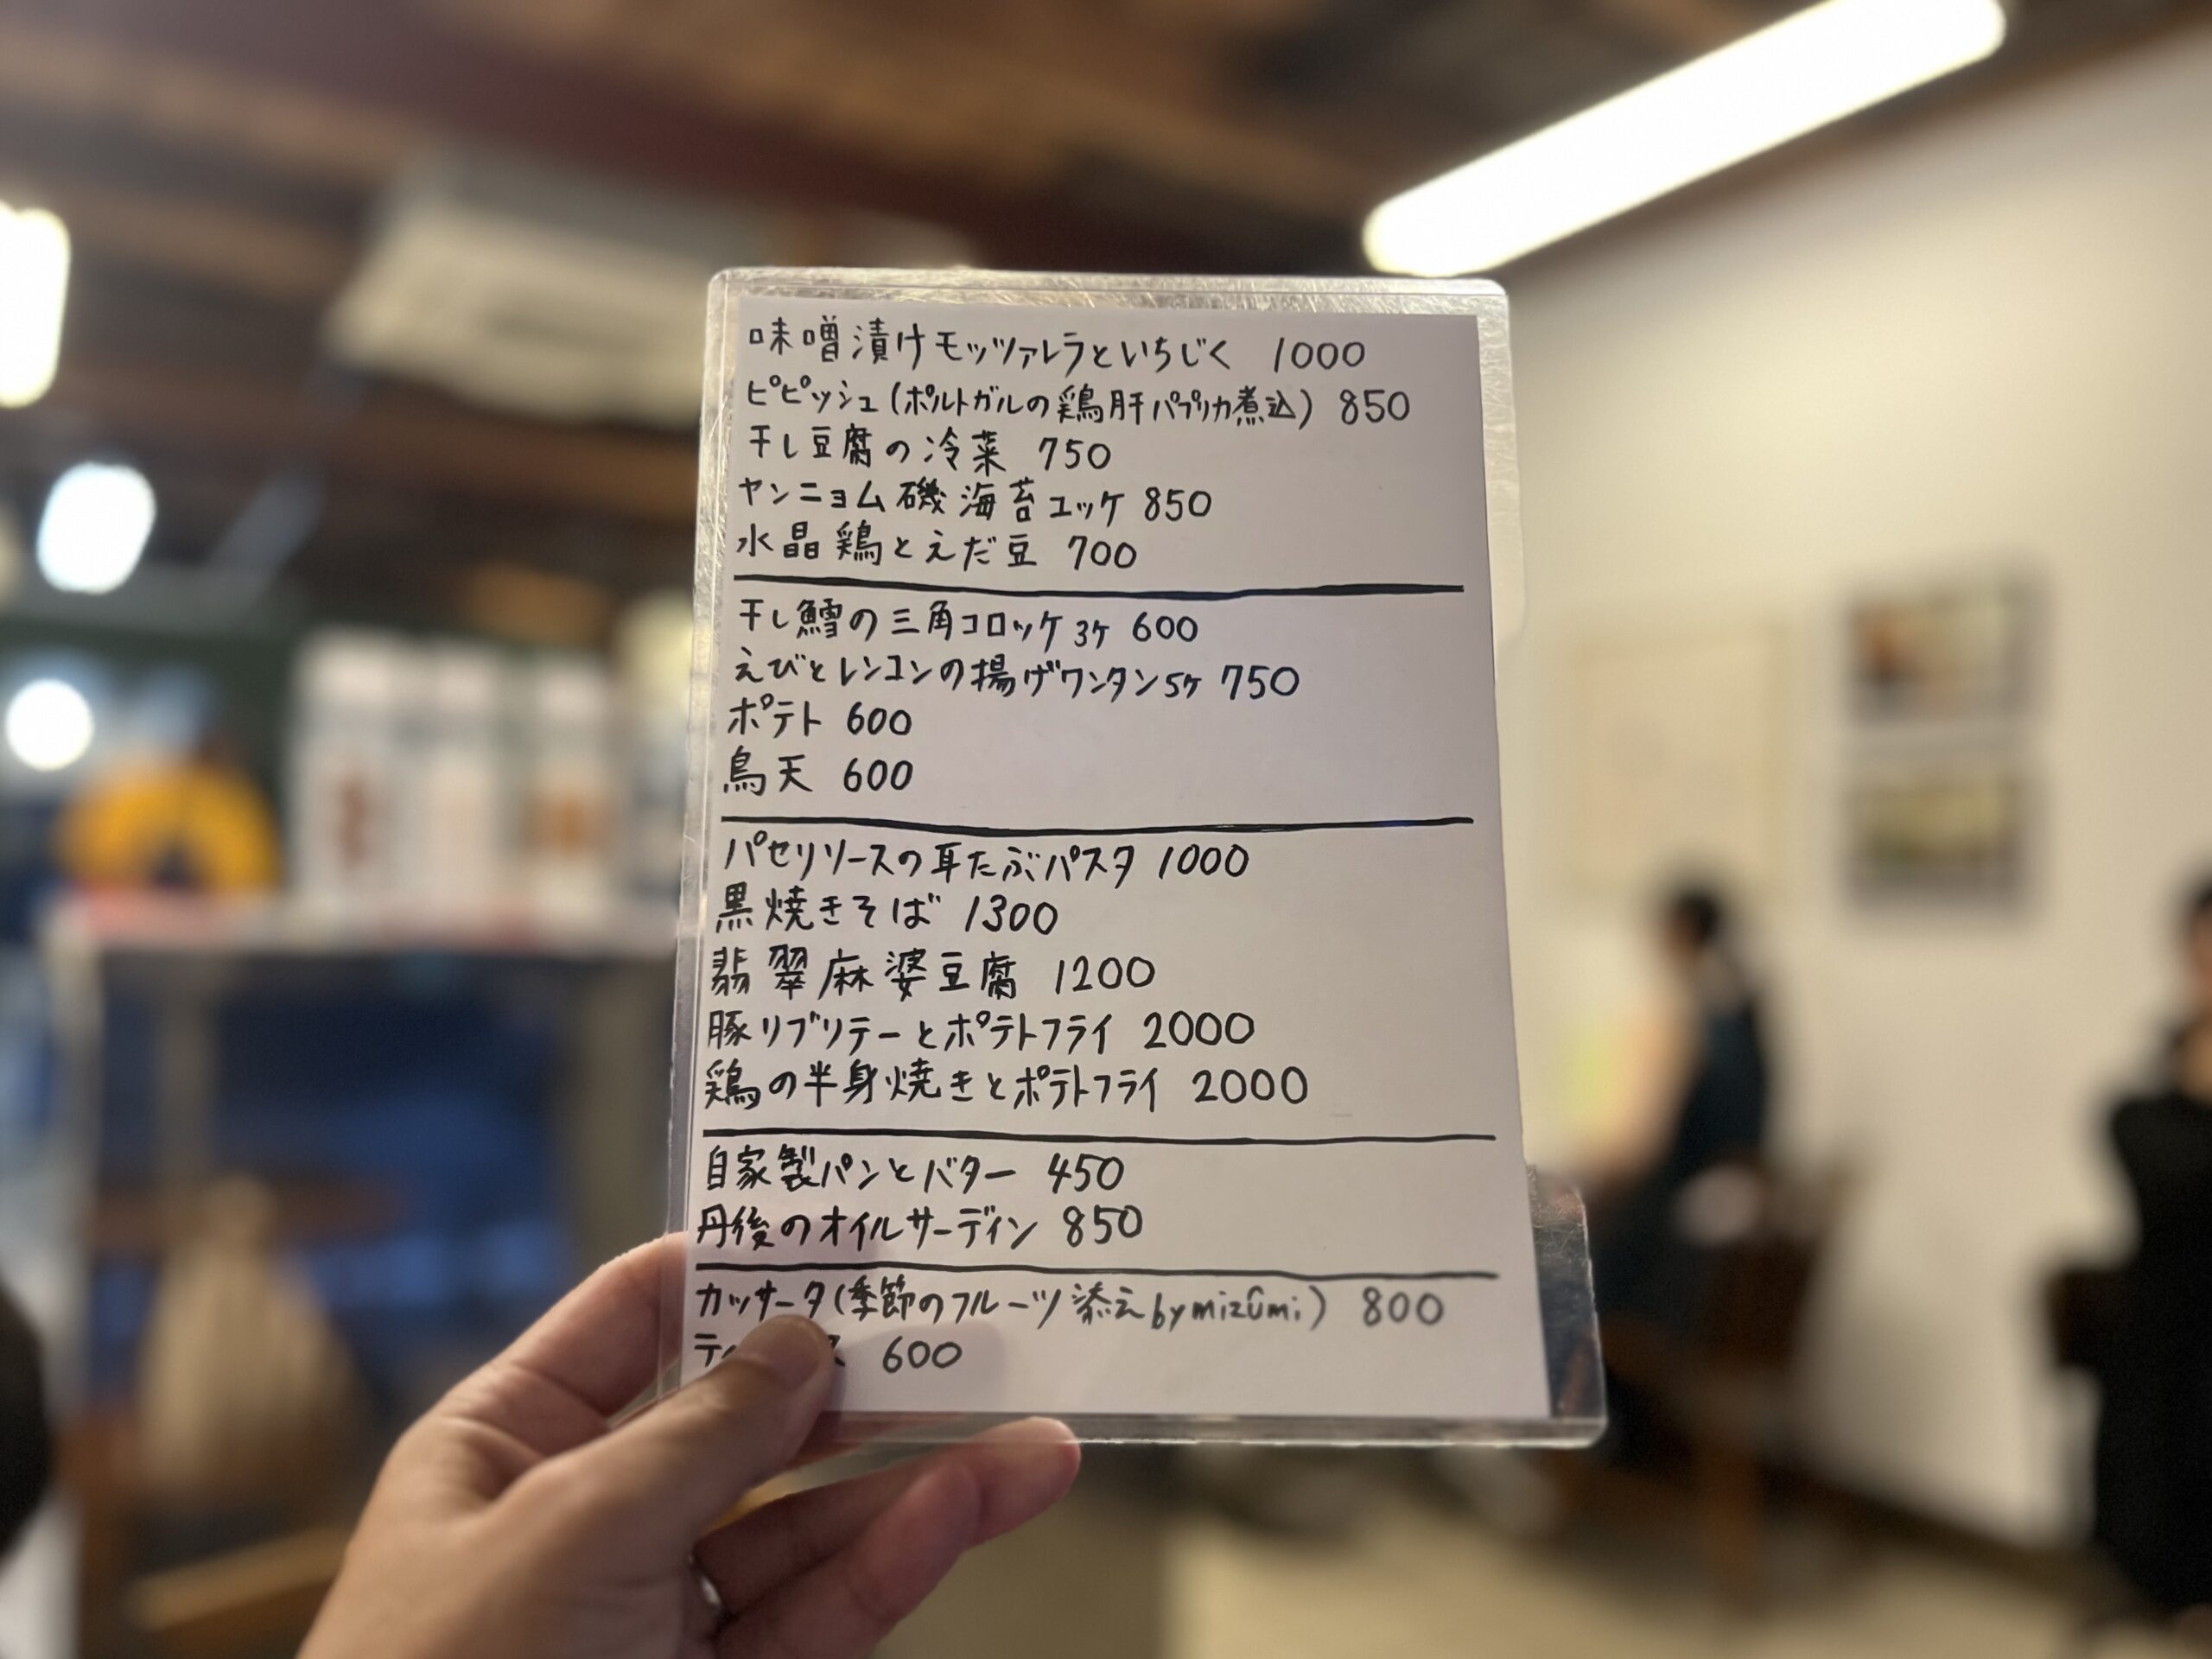 味噌漬けモッツァレラといちじく 1000
ピピッシュ(ポルトガルの鶏肝パプリカ煮込) 850
干し豆腐の冷菜 750
ヤンニョム磯海苔ユッケ 850
水晶鶏とえだ豆 700
干し鱈の三角コロッケ3ケ 600
えびとレンコンの揚げワンタン5ケ 750
ポテト 600
鳥天 600
パセリソースの耳たぶパスタ 1000
黒焼きそば 1300
翡翠麻婆豆腐 1200
豚リブリテーとポテトフライ 2000
鶏の半身焼きとポテトフライ 2000
自家製パンとバター 450
丹後のオイルサーディン 850
カッサータ(季節のフルーツ添え by mizūmi) 800
600